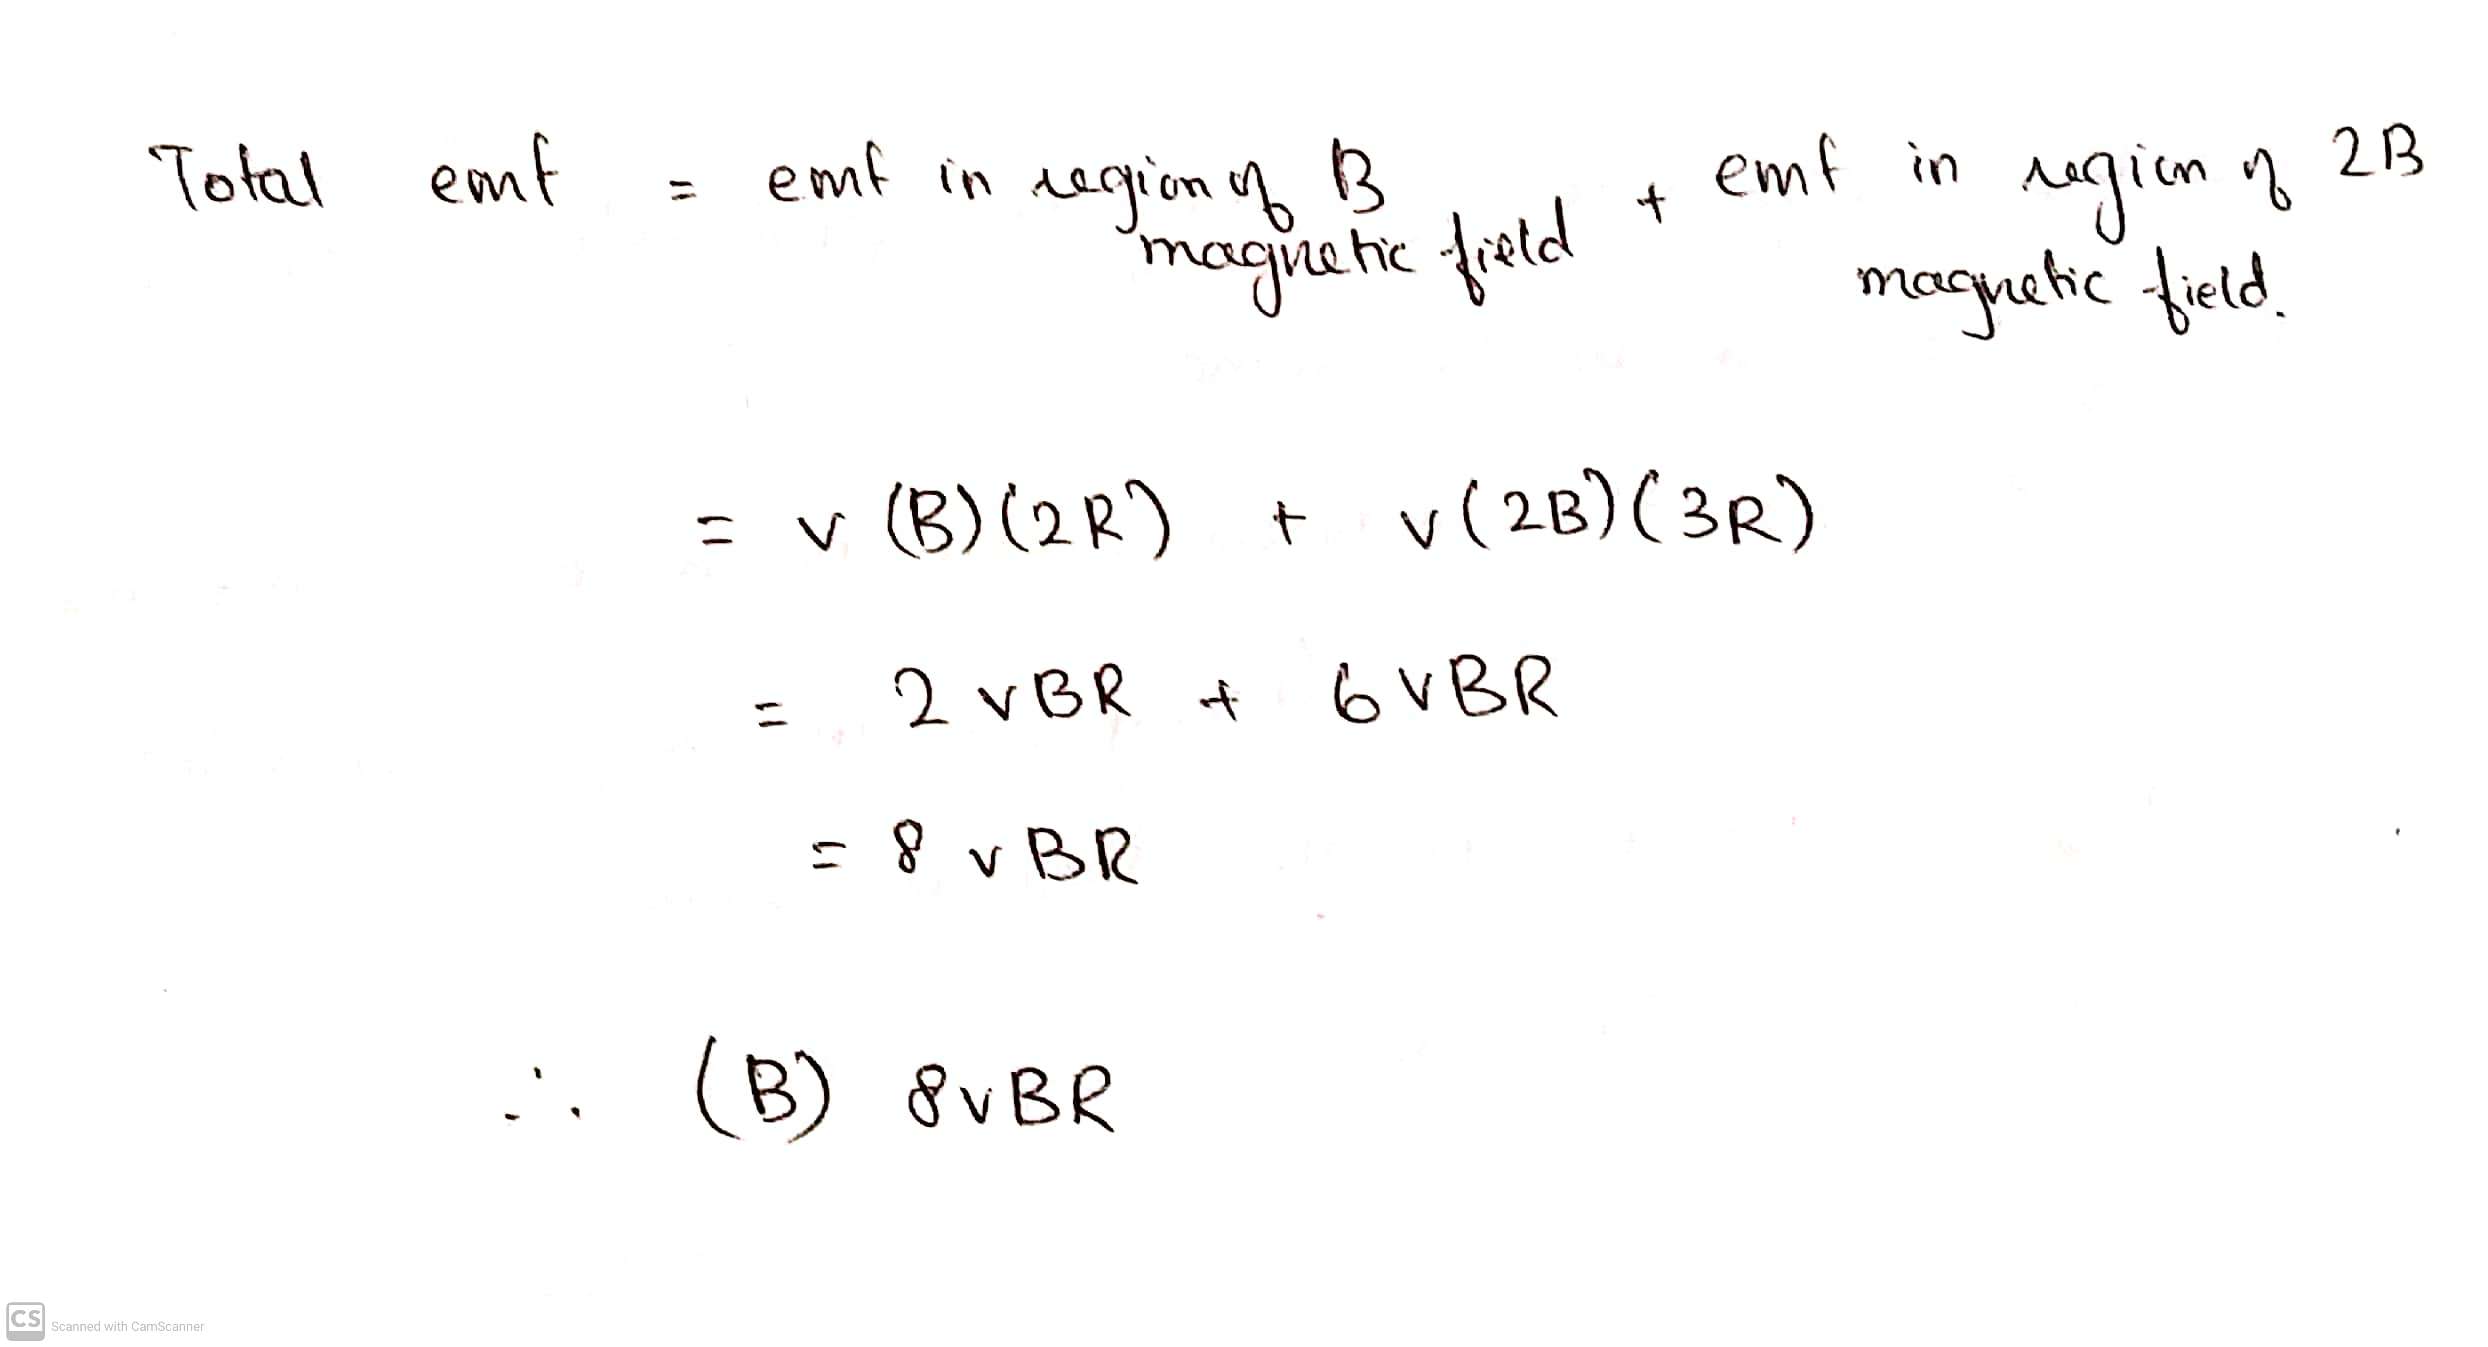 Total emf = emf in region of B magnetic field + emf in region of 2B magnetic field.
= v (B) (2R) + v (2B) (3R)
= 2 vBR + 6 vBR
= 8 vBR
∴ (B) 8vBR
CS Scanned with CamScanner